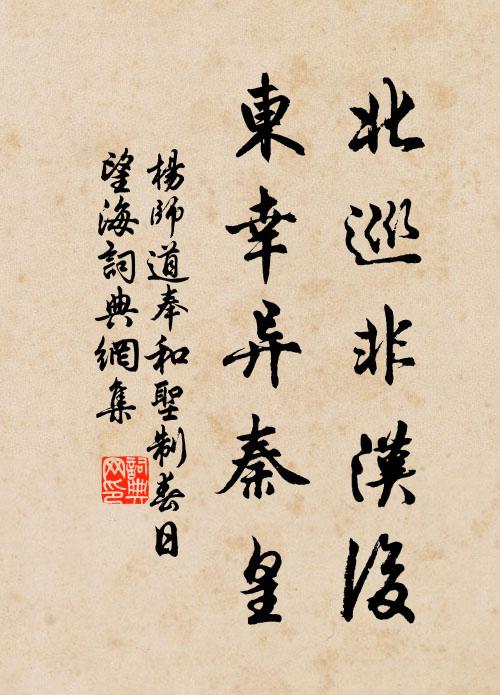 北巡非漢後
東幸异秦皇
楊師道奉和聖制春日
望海詞典網集
詞典網印